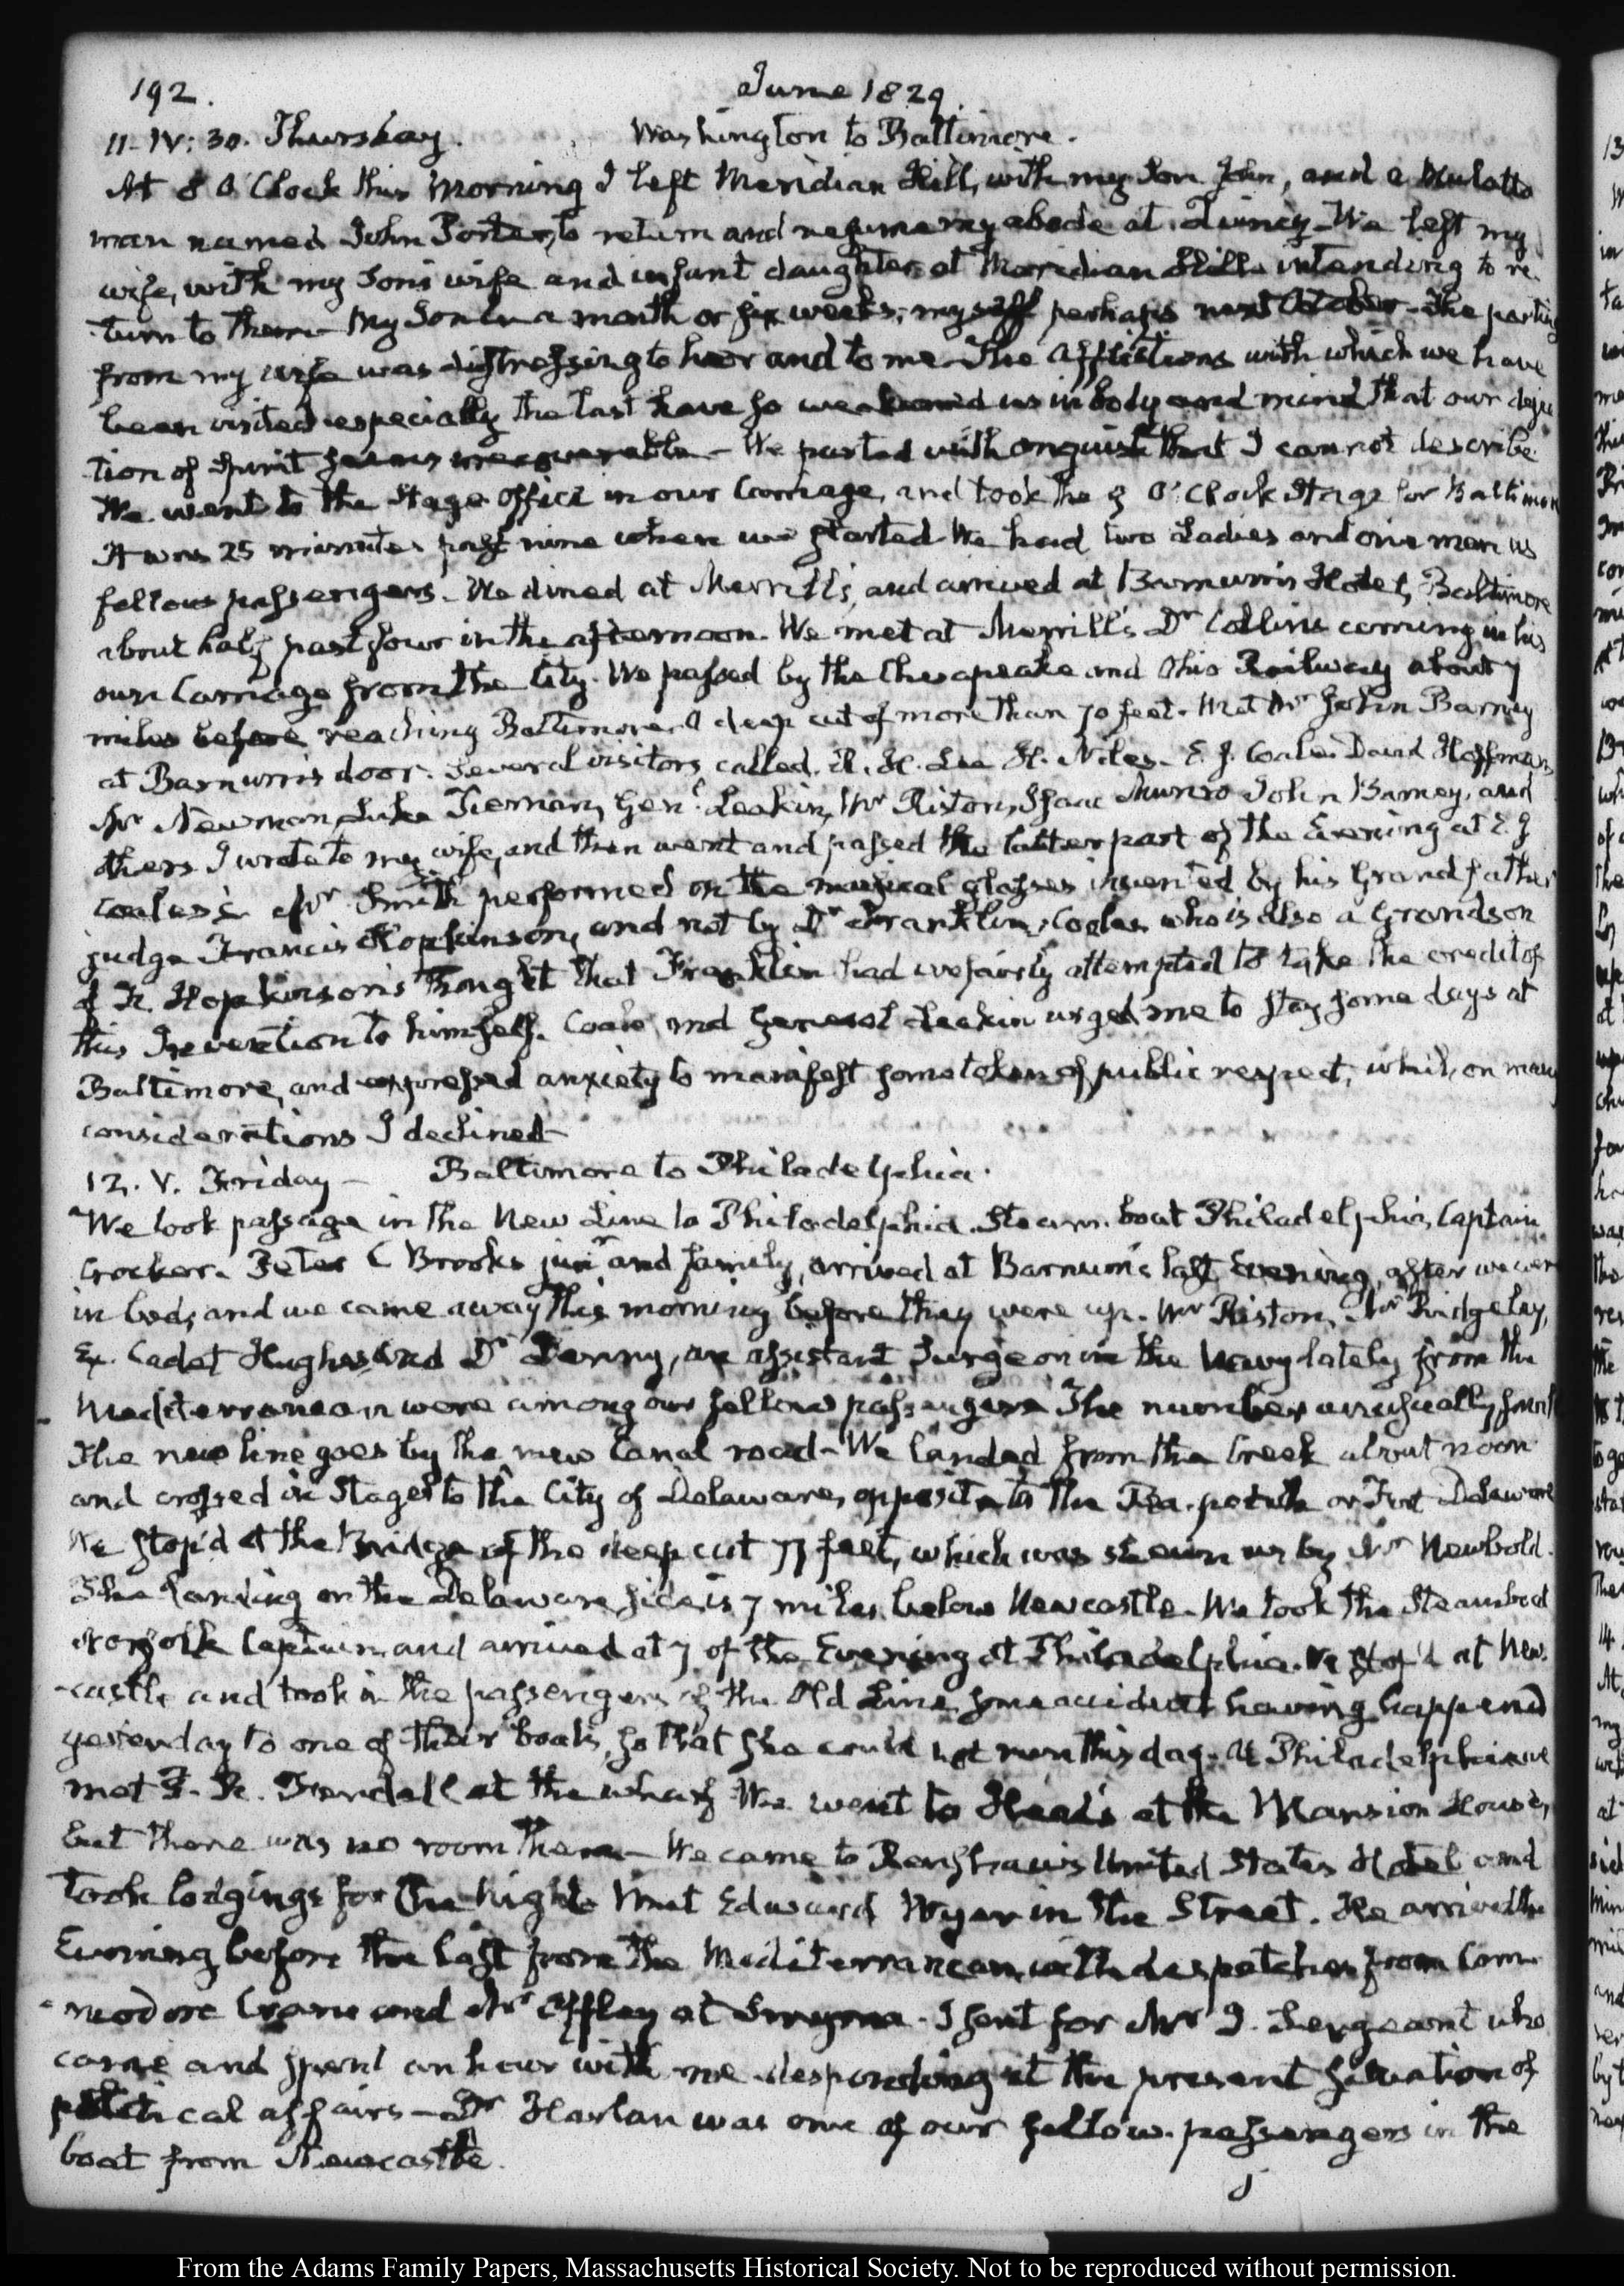 192.
June 1829.
11. IV: 30. Thursday.
Washington to Baltimore.
At 8 O'Clock this Morning I left Meridian Hill, with my Son John, and a Mulatto
man named John Porter, to return and resume my abode at Quincy - We left my
wife, with my Son's wife and infant daughter at Meridian Hill intending to re-
turn to them - My Son in a month or six weeks; myself perhaps next October - The parting
from my wife was distressing to her and to me - The afflictions with which we have
been visited especially the last have so weakened us in body and mind that our dejec
tion of Spirit seems irrecoverable - We parted with anguish that I cannot describe
We went to the Stage Office in our Carriage, and took the 9 O'Clock Stage for Baltimore
It was 25 minutes past nine when we started We had two Ladies and one man as
fellow passengers - We dined at Merrill's, and arrived at Barnum's Hotel, Baltimore
about half past four in the afternoon. We met at Merrill's Dr. Collins coming in his
own Carriage from the City. We passed by the Chesapeake and Ohio Railway about 7
miles before reaching Baltimore. A deep cut of more than 70 feet. Met Mr John Barney
at Barnum's door. Several visitors called. R. H. Lee H. Niles. E. J. Coale. David Hoffman
Mr Newman, Luke Tiernan, Genl. Leakin, Mr Riston, Isaac Munro John Barney, and
thers I wrote to my wife, and then went and passed the latter part of the Evening at E. J
Coales's Mr Smith performed on the musical glasses invented by his Grandfather
judge Francis Hopkinson, and not by Dr Franklin; Coale, who is also a Grandson
of F. Hopkinson's thought that Franklin had unfairly attempted to take the credit of
this Invention to himself. Coale, and General Leakin urged me to stay some days at
Baltimore, and expressed anxiety to manifest some token of public respect, which on many
considerations I declined
12. V. Friday -
Baltimore to Philadelphia.
We took passage in the New Line to Philadelphia. Steam-boat Philadelphia, Captain
Crocker. Peter C Brooks junr and family, arrived at Barnum's last Evening, after we were
in bed; and we came away this morning before they were up. Mr Riston, Mr Ridgeley,
Ex. Cadet Hughes and Dr Denny, an assistant Surgeon in the Navy lately from the
Mediterranean were among our fellow passengers The number unusually small
The new line goes by the new Canal road - We landed from the Creek about noon
and crossed in Stages to the City of Delaware, opposite to the Pea-patch or Fort Delaware
We stop'd at the Bridge of the deep cut 77 feet, which was shewn us by Mr Newbold.
The landing on the Delaware side is 7 miles below Newcastle - We took the Steamboat
Norfolk Captain and arrived at 7 of the Evening at Philadelphia. We stop'd at New-
castle and took in the passengers of the Old Line some accident having happened
yesterday to one of their boats, so that she could not run this day. At Philadelphia we
met F. R. Fendall at the wharf We went to Head's at the Mansion House,
but there was no room there - We came to Renshaw's United States Hotel and
took lodgings for the night Met Edward Wyer in the Street. He arrived the
Evening before the last from the Mediterranean, with despatches from Com-
modore Crane and Mr Offley at Smyrna. I sent for Mr J. Sergeant who
came and spent an hour with me desponding at the present situation of
political affairs - Dr Harlan was one of our fellow-passengers in the
boat from Newcastle.
From the Adams Family Papers, Massachusetts Historical Society. Not to be reproduced without permission.